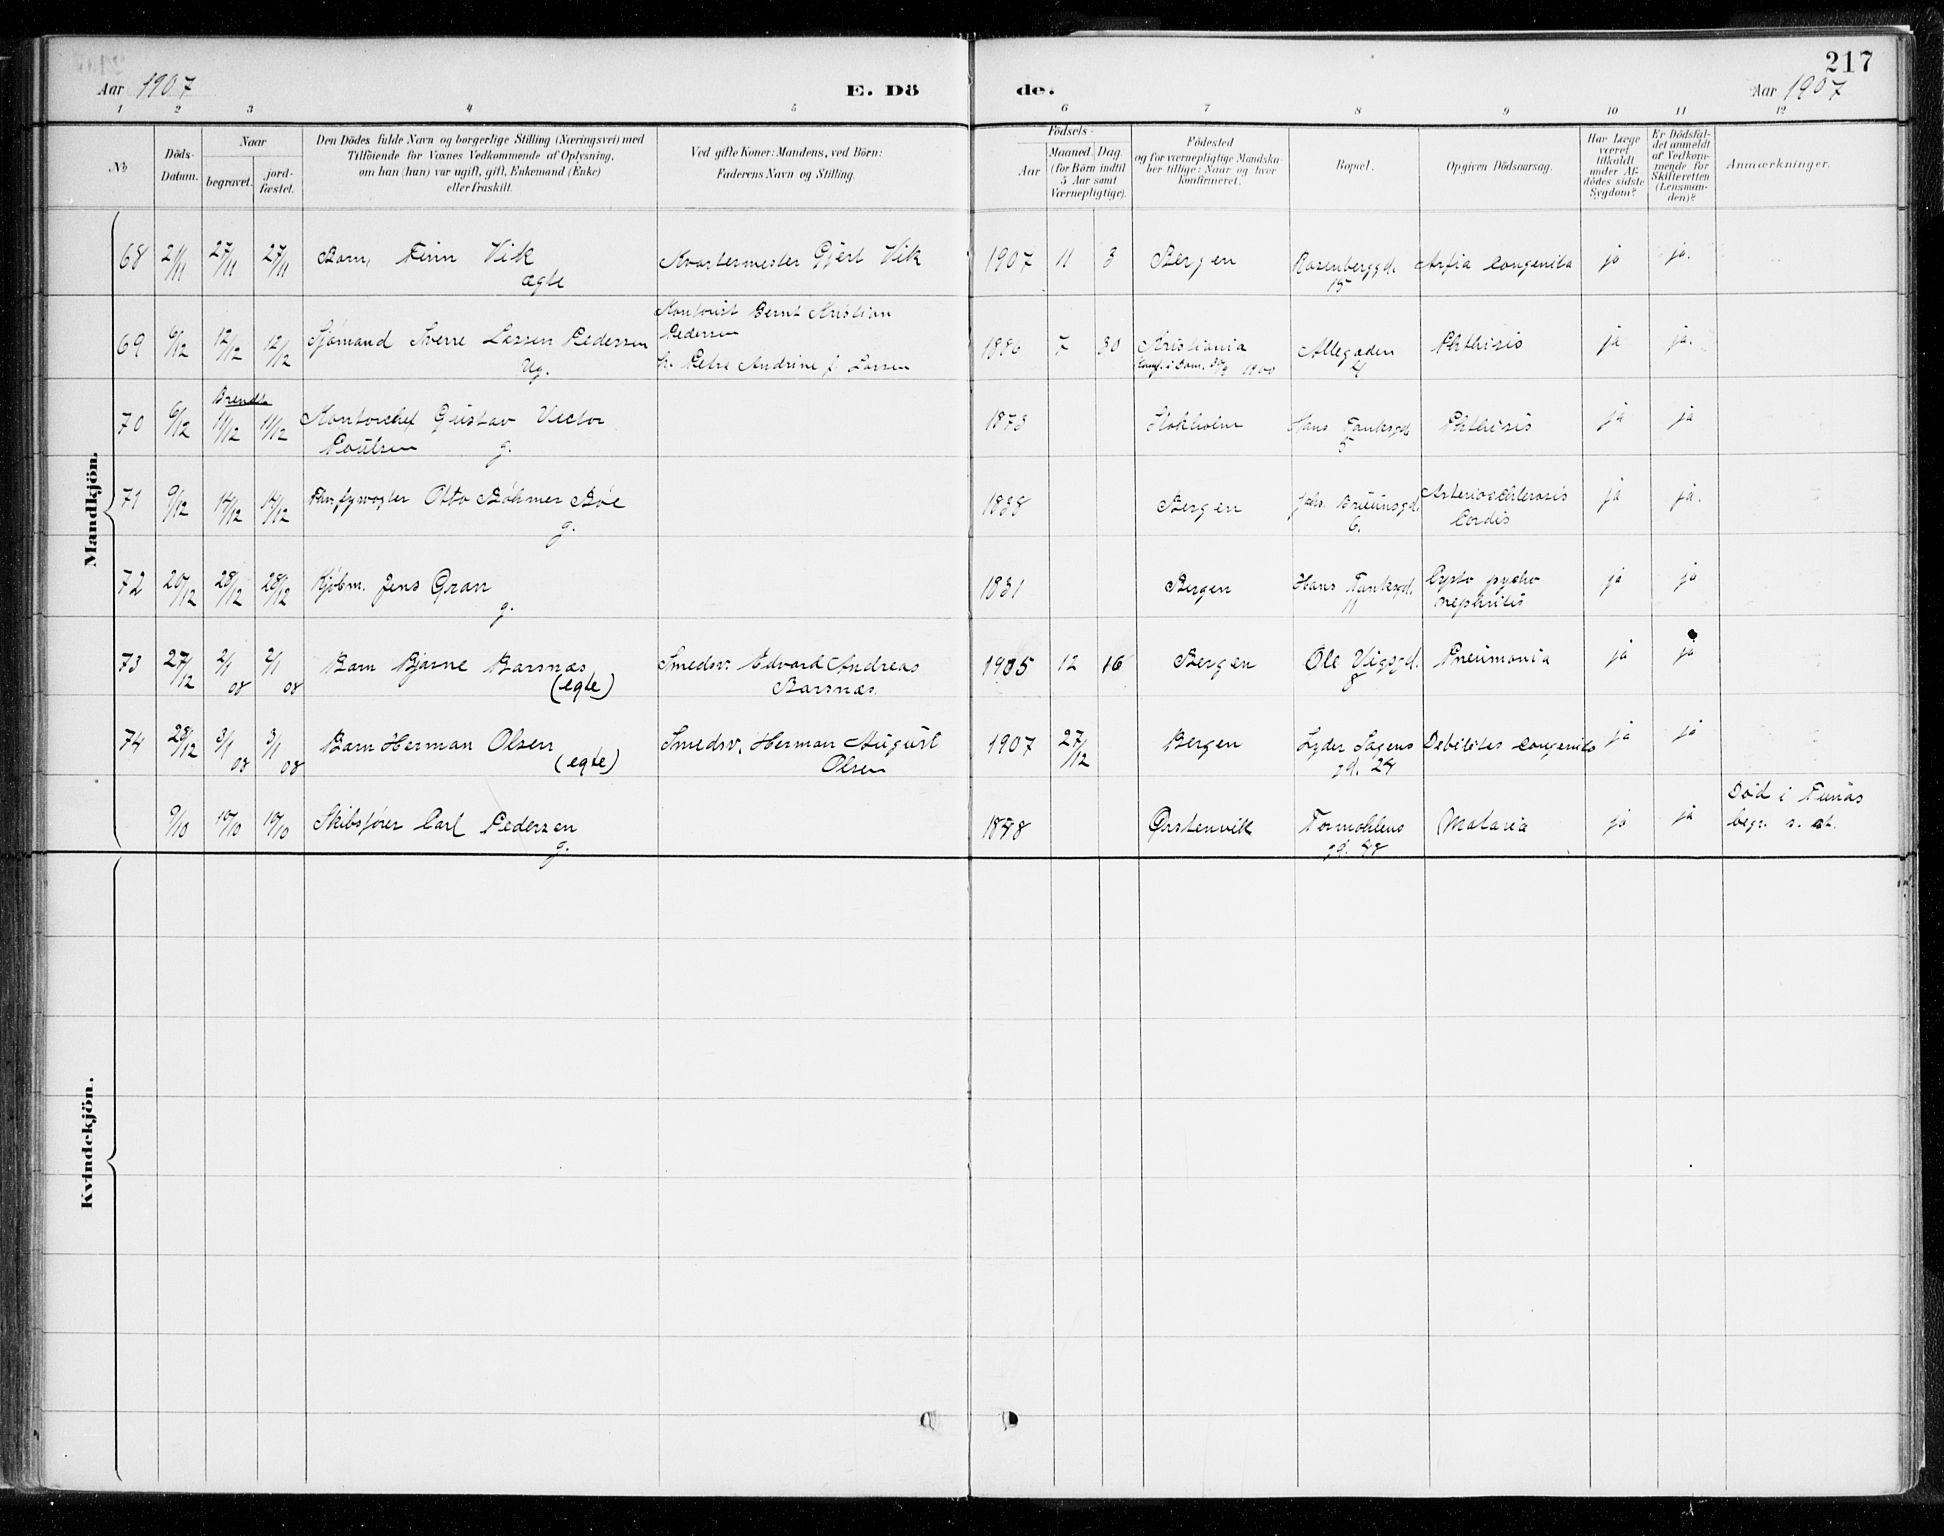 217
Aar 1907
E. Dö
de.
Aar 1907
1 2 3 4 5 6 7 8 9 10 11 12
No
Döds-
Datum.
Naar
begravet.
jord-
fæstet.
Den Dödes fulde Navn og borgerlige Stilling (Næringsvei) med
Tilföiende for Voxnes Vedkommende af Oplysning,
om han (hun) var ugift, gift, Enkemand (Enke)
eller fraskilt.
Ved gifte Koner: Mandens, ved Börn:
Faderens Navn og Stilling.
Födsels-
Aar
Maaned. Dag.
(for Börn indtil
5 Aar samt
Værnepligtige).
Födested
og for værnepligtige Mandska-
ber tillige: Naar og hvor
konfirmeret.
Bopæl.
Opgiven Dödsaarsag.
Har Læge
været
tilkaldt
under Af-
dödes sidste
Sygdom?
Er Dödsfal-
det anmeldt
af Vedkom-
mende for
Skifteretten
(Lensman-
den)?
Anmærkninger.
Mandkjön.
68 21/11 27/11 27/11 Barn, Finn Vik Kvartermester Gjert Vik 1907 11 3 Bergen Rosenberggd. Asfia Congenita ja ja.
ægte 15
Kontorist Bernt Kristian
69 6/12 12/12 12/12 Sjømand Sverre Larsen Pedersen Pedersen 1886 7 30 Kristiania Allegaden Phthisis ja ja.
Ug. h. Petra Andrine f. Larsen 4
Brendt
70 6/12 11/12 11/12 Kontorchef Gustav Victor 1873 Stokholm Hans Tanksgd Phthisis ja ja
Poulsen g. 5
71 9/12 14/12 14/12 Otto Böhmer Böe 1838 Bergen Joh. Bruunsgd. Arterioschlerosis ja ja.
g. 6. Cordis
72 20/12 28/12 28/12 Kjøbm. Jens Gran 1831 Bergen Hans Tanksgd. Cysto ja ja
g. 11 nephritis
73 27/12 2/1 08 2/1 08 Barn Bjarne Barsnæs Smedsv. Edvard Andreas 1905 12 16 Bergen Ole Vigsgd. Pneumonia ja ja
(egte) Barsnæs. 8
74 28/12 3/1 08 3/1 08 Barn Herman Olsen Smedsv. Herman August 1907 27/12 Bergen Lyder Sagens Debilitas Congenita ja ja
(egte) Olsen gd. 24
9/10 10/10 10/10 Skibsfører Carl Pedersen 1848 Ørstenvik Formohlens Malaria ja ja Död i
g. gd. 48 begr. s. st.
Kvindekjön.